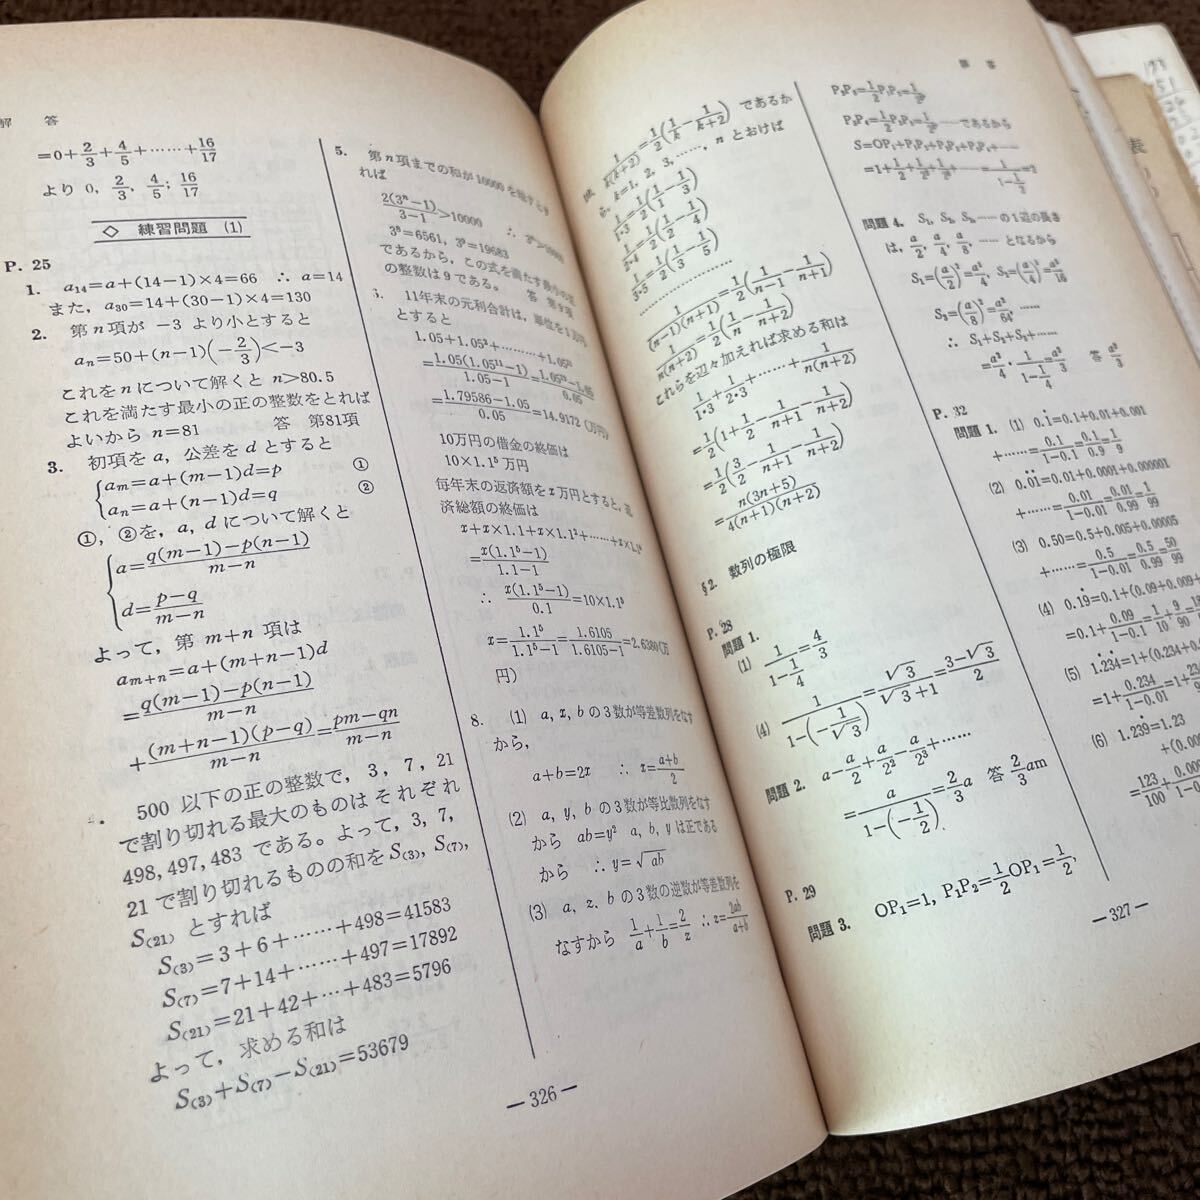 解 答
=0+2/3+4/5+……+16/17
より 0, 2/3, 4/5; 16/17
◇ 練習問題 (1)
P. 25
1. a₁₄=a+(14−1)×4=66 ∴ a=14
また, a₃₀=14+(30−1)×4=130
2. 第n項が −3 より小とすると
aₙ=50+(n−1)(−2/3)<−3
これをnについて解くと n>80.5
これを満たす最小の正の整数をとれば
よいから n=81 答 第81項
3. 初項を a, 公差を d とすると
aₘ=a+(m−1)d=p ①
aₙ=a+(n−1)d=q ②
①, ②を, a, d について解くと
a=(q(m−1)−p(n−1))/(m−n)
d=(p−q)/(m−n)
よって, 第 m+n 項は
aₘ₊ₙ=a+(m+n−1)d
=(q(m−1)−p(n−1))/(m−n)
+((m+n−1)(p−q))/(m−n)=(pm−qn)/(m−n)
500 以下の正の整数で, 3, 7, 21
で割り切れる最大のものはそれぞれ
498, 497, 483 である。よって, 3, 7,
21 で割り切れるものの和を S₍₃₎, S₍₇₎,
S₍₂₁₎ とすれば
S₍₃₎=3+6+……+498=41583
S₍₇₎=7+14+……+497=17892
S₍₂₁₎=21+42+…+483=5796
よって, 求める和は
S₍₃₎+S₍₇₎−S₍₂₁₎=53679
5. 第n項までの和が10000を
れば
2(3ⁿ−1)/(3−1)>10000 ∴ 3ⁿ>
3⁸=6561, 3⁹=19683
であるから, この式を満たす
の整数は9である。 答
11年末の元利合計は, 単位を1万円
とすると
1.05+1.05²+………+1.05¹¹
=1.05(1.05¹¹−1)/(1.05−1)=
=(1.79586−1.05)/0.05=14.9172 (万円)
10万円の借金の終価は
10×1.1⁵ 万円
毎年末の返済額をx万円とすると, 返
済総額の終価は
x+x×1.1+x×1.1²+……+x×1.1⁴
=x(1.1⁵−1)/(1.1−1)
∴ x(1.1⁵−1)/0.1=10×1.1⁵
x=1.1⁵/(1.1⁵−1)=1.6105/(1.6105−1)=2.6380(万
円)
8. (1) a, x, b の3数が等差数列をなす
から,
a+b=2x ∴ x=(a+b)/2
(2) a, y, b の3数が等比数列をなす
から ab=y² a, b, y は正である
から ∴ y=√ab
(3) a, z, b の3数の逆数が等差数列を
なすから 1/a+1/b=2/z ∴ z=2ab/(a+b)
—326—
解 答
1/(k(k+2))=1/2(1/k−1/(k+2)) であるか
ら, k=1, 2, 3, ……, n とおけば
1/(1・3)=1/2(1/1−1/3)
1/(2・4)=1/2(1/2−1/4)
1/(3・5)=1/2(1/3−1/5)
……………………
1/((n−1)(n+1))=1/2(1/(n−1)−1/(n+1))
1/(n(n+2))=1/2(1/n−1/(n+2))
これらを辺々加えれば求める和は
1/(1・3)+1/(2・3)+……+1/(n(n+2))
=1/2(1+1/2−1/(n+1)−1/(n+2))
=1/2(3/2−1/(n+1)−1/(n+2))
=n(3n+5)/(4(n+1)(n+2))
§2. 数列の極限
P. 28
問題 1.
(1) 1/(1−1/4)=4/3
(4) 1/(1−(−1/√3))=√3/(√3+1)=(3−√3)/2
問題 2. a−a/2+a/2²−a/2³+……
=a/(1−(−1/2))=2/3a 答 2/3am
P. 29
問題 3. OP₁=1, P₁P₂=1/2OP₁=1/2,
P₂P₃=1/2P₁P₂=1/2²
P₃P₄=1/2P₂P₃=1/2³ ……であるから
S=OP₁+P₁P₂+P₂P₃+P₃P₄+……
=1+1/2+1/2²+1/2³+……=1/(1−1/2)=2
問題 4. S₁, S₂, S₃ …… の1辺の長さ
は, a/2, a/4, a/8, …… となるから
S₁=(a/2)²=a²/4, S₂=(a/4)²=a²/16
S₃=(a/8)²=a²/64, ……
∴ S₁+S₂+S₃+……
=a²/4・1/(1−1/4)=a²/3 答 a²/3
P. 32
問題 1. (1) 0.1̇=0.1+0.01+0.001
+……=0.1/(1−0.1)=0.1/0.9=1/9
(2) 0.0̇1̇=0.01+0.0001+0.000001
+……=0.01/(1−0.01)=0.01/0.99=1/99
(3) 0.50=0.5+0.005+0.00005
+……=0.5/(1−0.01)=0.5/0.99=50/99
(4) 0.19̇=0.1+(0.09+0.009+
=0.1+0.09/(1−0.1)=1/10+9/90=
(5) 1.2̇34̇=1+(0.234+0.
=1+0.234/(1−0.01)=1+
(6) 1.239̇=1.23
+(0.00
=123/100+
—327—
表